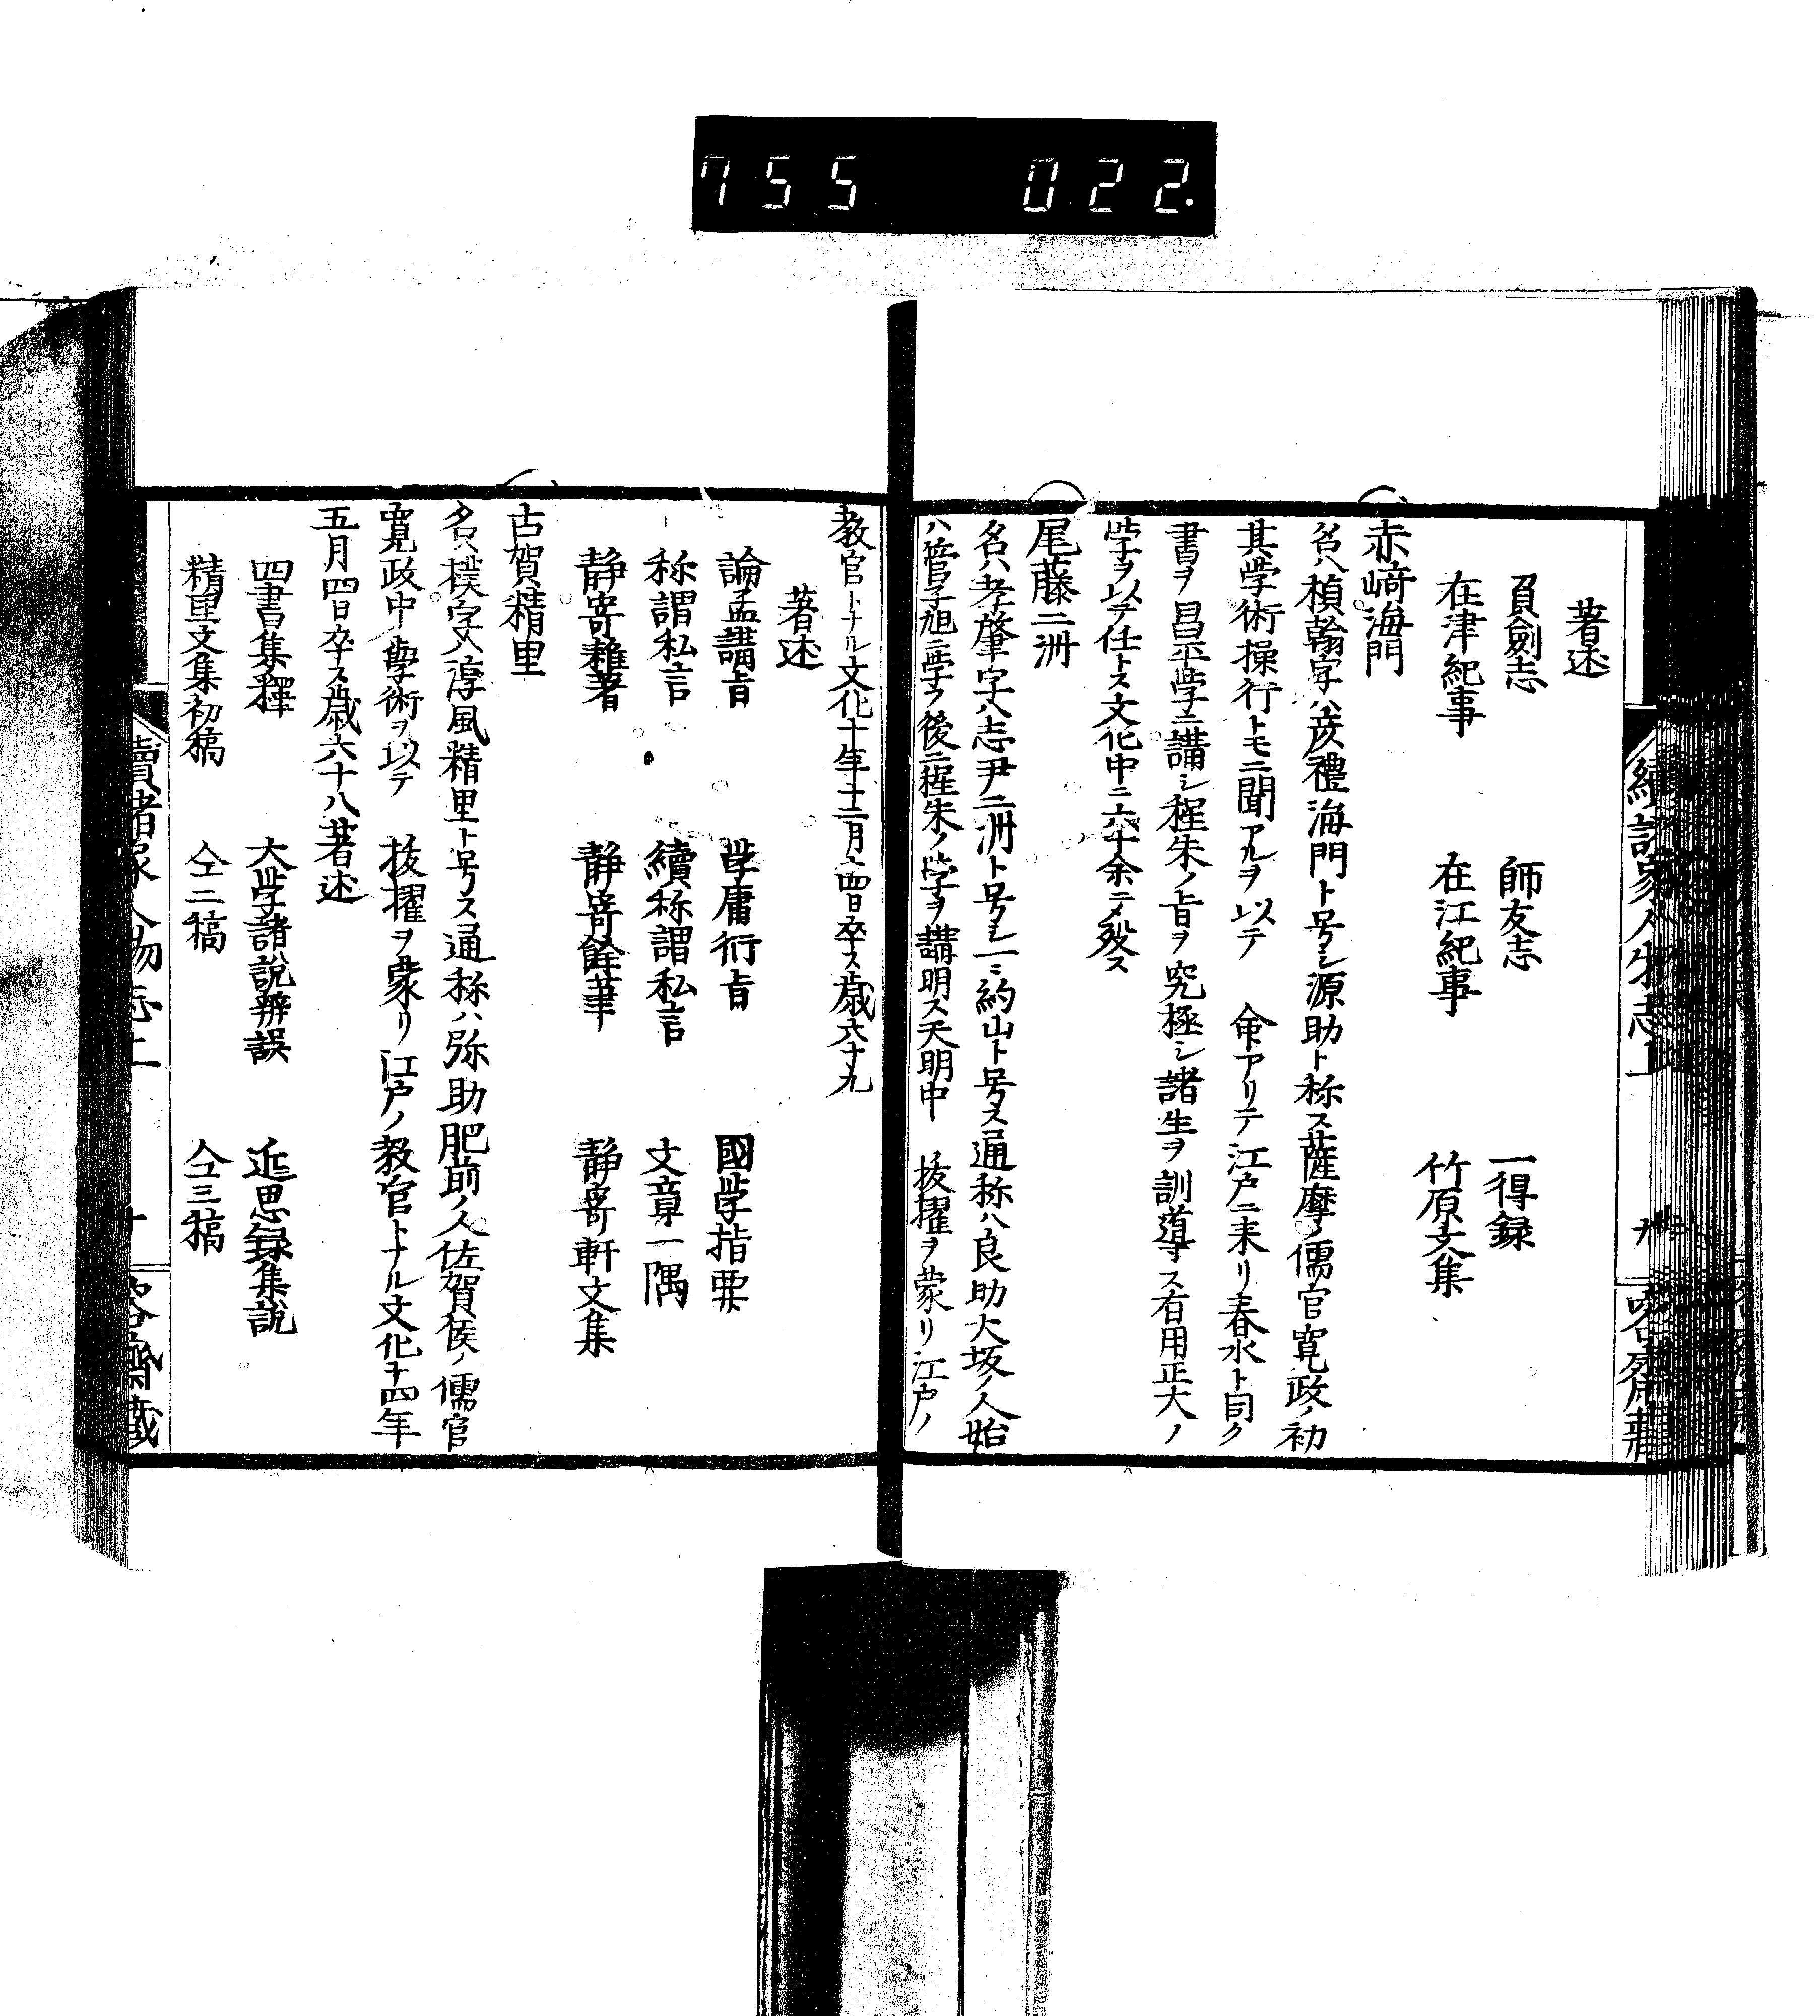 755 022.
著述
負劍志 師友志 一得録
在津紀事 在江紀事 竹原文集
赤﨑海門
名ハ楨翰字ハ彦禮海門ト号シ源助ト称ス薩摩ノ儒官寛政ノ初
其学術操行トモニ聞アルヲ以テ 命アリテ江戸ニ来リ春水ト同ク
書ヲ昌平学ニ講シ程朱ノ旨ヲ究極シ諸生ヲ訓導ス有用正大ノ
学ヲ以テ任トス文化中ニ六十余ニメ歿ス
尾藤二洲
名ハ孝肇字ハ志尹二洲ト号シ一ニ約山ト号ス通称ハ良助大坂ノ人始
ハ管子旭ニ学フ後ニ程朱ノ学ヲ講明ス天明中 抜擢ヲ蒙リ江戸ノ
續諸家人物志上
教官トナル文化十年十二月十四日卒ス歳六十九
著述
論孟講旨 学庸衍旨 國学指要
称謂私言 續称謂私言 文章一隅
静寄雜著 静寄餘筆 静寄軒文集
古賀精里
名ハ樸字ハ淳風精里ト号ス通称ハ弥助肥前ノ人佐賀侯ノ儒官
寛政中學術ヲ以テ 抜擢ヲ蒙リ江戸ノ教官トナル文化十四年
五月四日卒ス歳六十八著述
四書集釋 大学諸說辨誤 近思録集說
精里文集初稿 仝二稿 仝三稿
續諸家人物志上